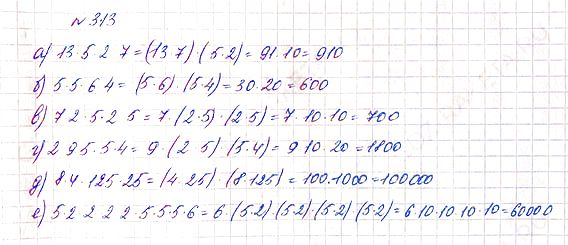 № 313
а) 13·5 2 7 = (13 7)·(5·2) = 91·10 = 910
б) 5·5·6 4 = (5·6)·(5·4) = 30·20 = 600
в) 7 2·5·2 5 = 7·(2·5)·(2·5) = 7·10·10 = 700
г) 2 9 5·5·4 = 9·(2 5)(5·4) = 9 10·20 = 1800
д) 8·4·125·25 = (4·25)·(8·125) = 100·1000 = 100000
е) 5·2 2 2 2·5·5·5·6 = 6·(5·2)(5·2)(5·2)(5·2) = 6·10·10·10·10 = 60000